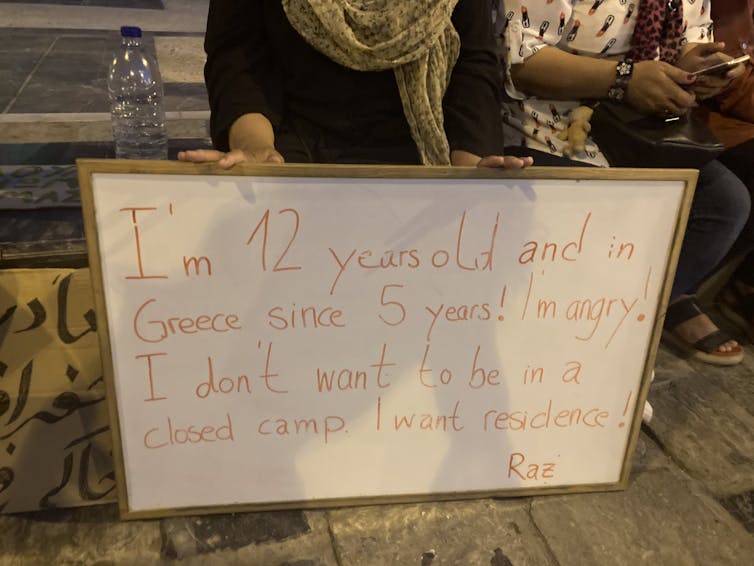 I'm 12 years old and in
Greece since 5 years! I'm angry!
I don't want to be in a
closed camp. I want residence!
Raz